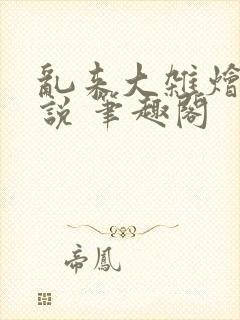 亂來大雜燴
說 筆趣閣
帝鳳